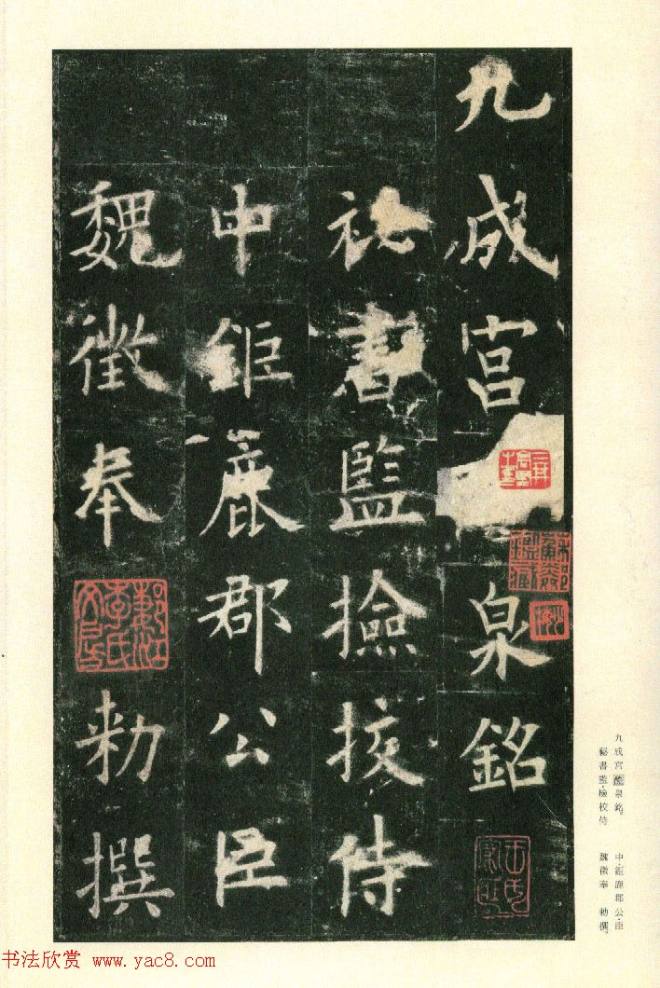 九成宮泉銘
祕書監撿挍侍
中鉅鹿郡公臣
魏徵奉
勑撰
九成宮醴泉銘。
秘書監·檢校侍
中·鉅鹿郡公·臣
魏徵奉 勅撰。
书法欣赏 www.yac8.com